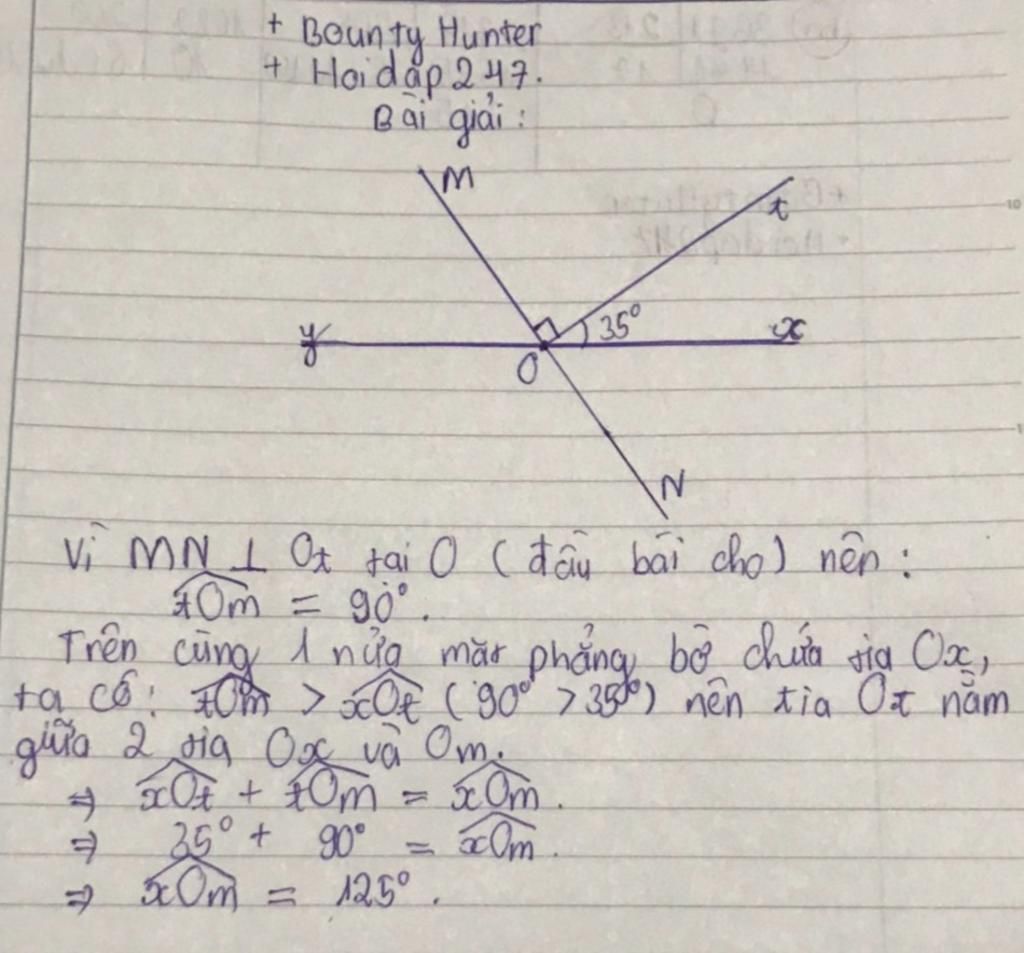 + Bounty Hunter
+ Hoidap247.
Bài giải:
M
t
y
35°
x
O
N
Vì MN ⊥ Ot tại O (đầu bài cho) nên:
tOm = 90°.
Trên cùng 1 nửa mặt phẳng bờ chứa tia Ox,
ta có: tOm > xOt (90° > 35°) nên tia Ot nằm
giữa 2 tia Ox và Om.
⇒ xOt + tOm = xOm.
⇒ 35° + 90° = xOm.
⇒ xOm = 125°.